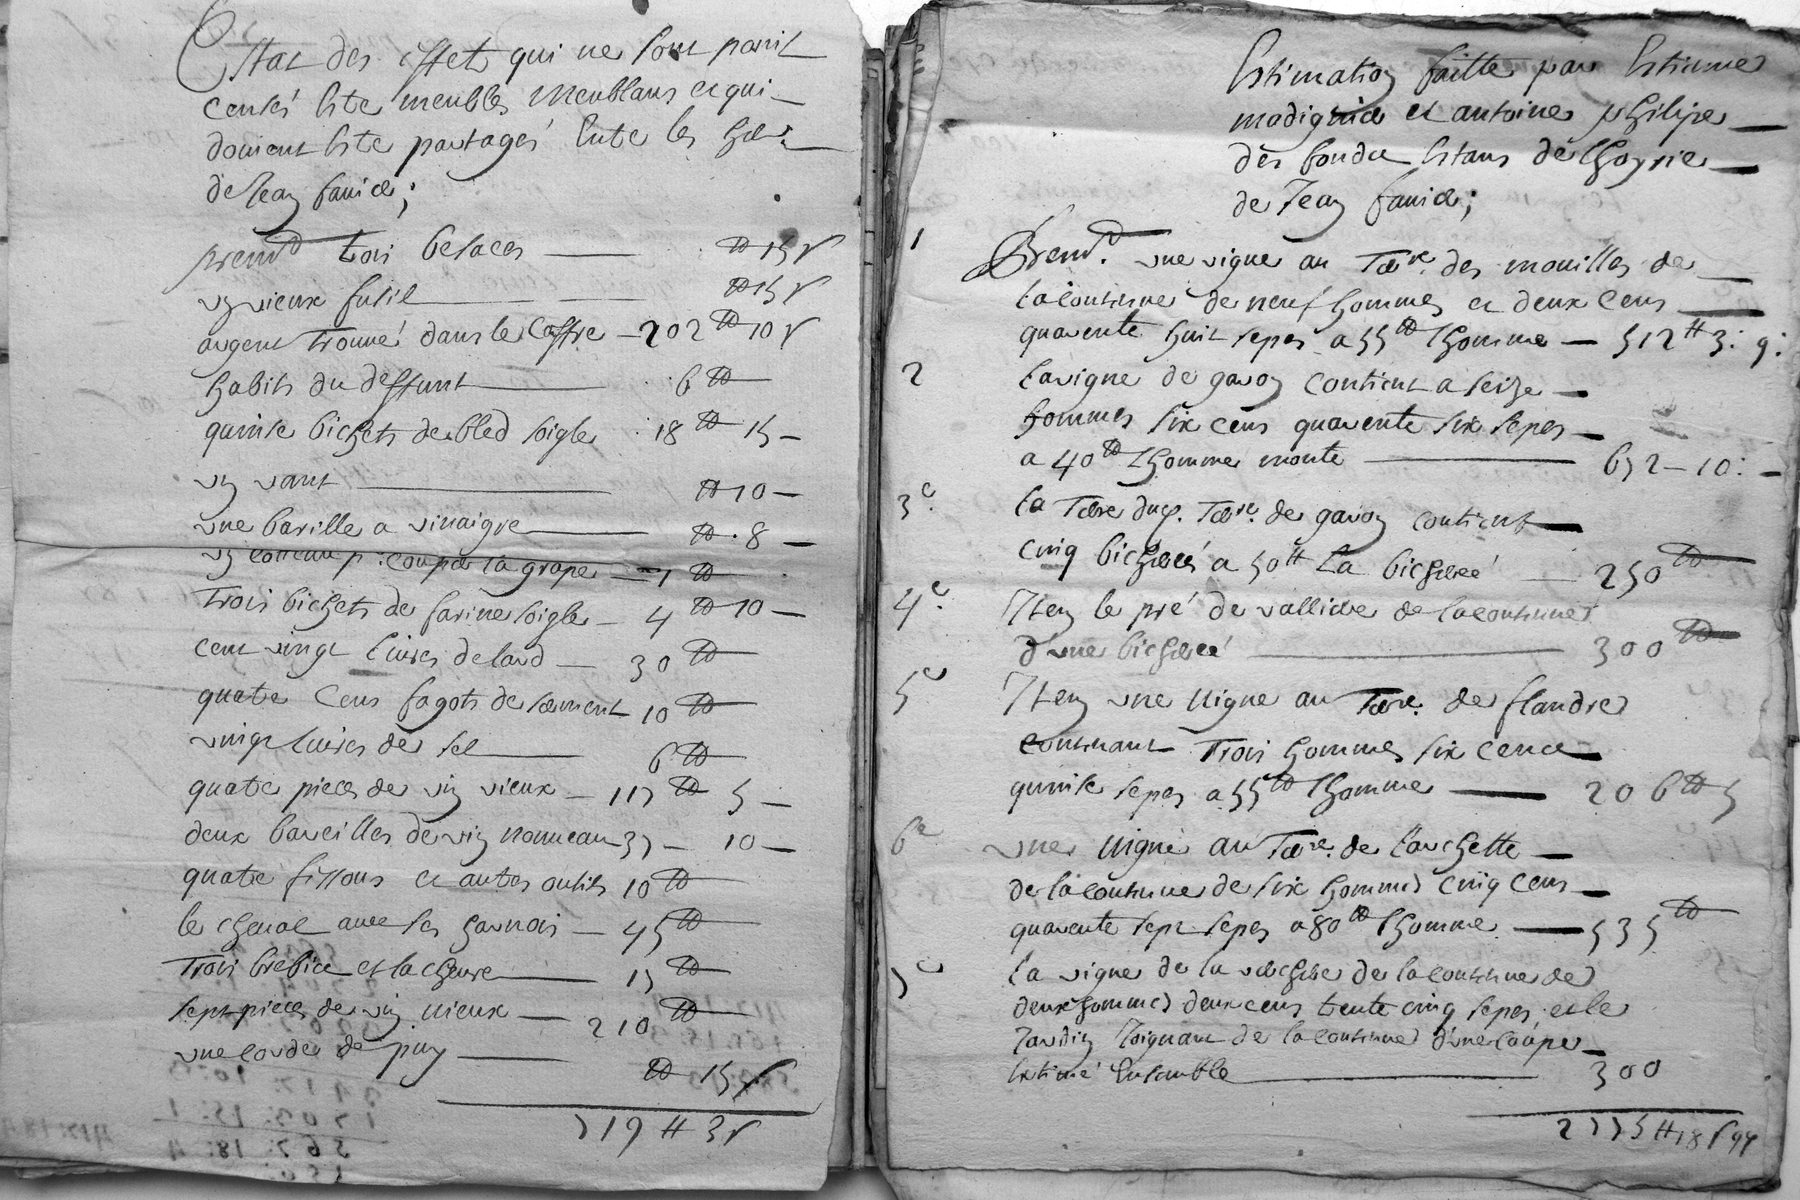 Estat des effet qui ne sont point
censés estre meubles meublans et qui
doivent estre partagés entre les her.
de Jean faviere;
prem.d trois besaces — ₶ 15 s
un vieux fusil — ₶ 15 s
argent trouvé dans le coffre — 202 ₶ 10 s
habits du deffunt — 6 ₶
quinse bichets de bled soigle 18 ₶ 15 —
un vant — ₶ 10 —
une barille a vinaigre — ₶ 8 —
un p. coupes la grape — 1 ₶
trois bichets de farine soigle — 4 ₶ 10 —
cent vingt livres de lard — 30 ₶
quatre cens fagots de serment 10 ₶
vingt livres de sel — 6 ₶
quatre pieces de vin vieux — 117 ₶ 5 —
deux bareilles de vin nouveau 37 — 10 —
quatre fessous et autres outils 10 ₶
le cheval avec ses harnois — 45 ₶
trois brebice et la chevre — 17 ₶
sept pieces de vin vieux — 210 ₶
une corde de puy —
₶ 15 s
719 ₶ 3 s
Estimation faitte par Estienne
et antoine philipe
des fondse estans de lhoyrie
de Jean faviere;
1 Prem.d une vigne au Terre. des mouilles de
la contenue de neuf hommes et deux cens
quarente huit sepes a 55 ₶ lhomme — 512 ₶ 3: 9:
2 la vigne de gavon contient a seize
hommes six cens quarente six sepes
a 40 ₶ lhomme monte — 652 — 10: —
3e. la Terre dup. Terre. de gavon contient
cinq bicherée a 50 ₶ la bicherée — 250 ₶
4e. Item le pré de valliere de la contenue
d'une bicherée — 300 ₶
5e Item une vigne au Terre. de flandre
contenant trois hommes six cence
quinse sepes a 55 ₶ lhomme — 206 ₶ 5
6e une vigne au Terre. de larchette
de la contenue de six hommes cinq cens
quarente sept sepes a 80 ₶ lhomme — 535 ₶
7e la vigne de la verchere de la contenue de
deux hommes deux cens trente cinq sepes et le
Jardin Joignant de la contenue d'une coupe
Estimé Ensemble — 300
2775 ₶ 18 s 9 d